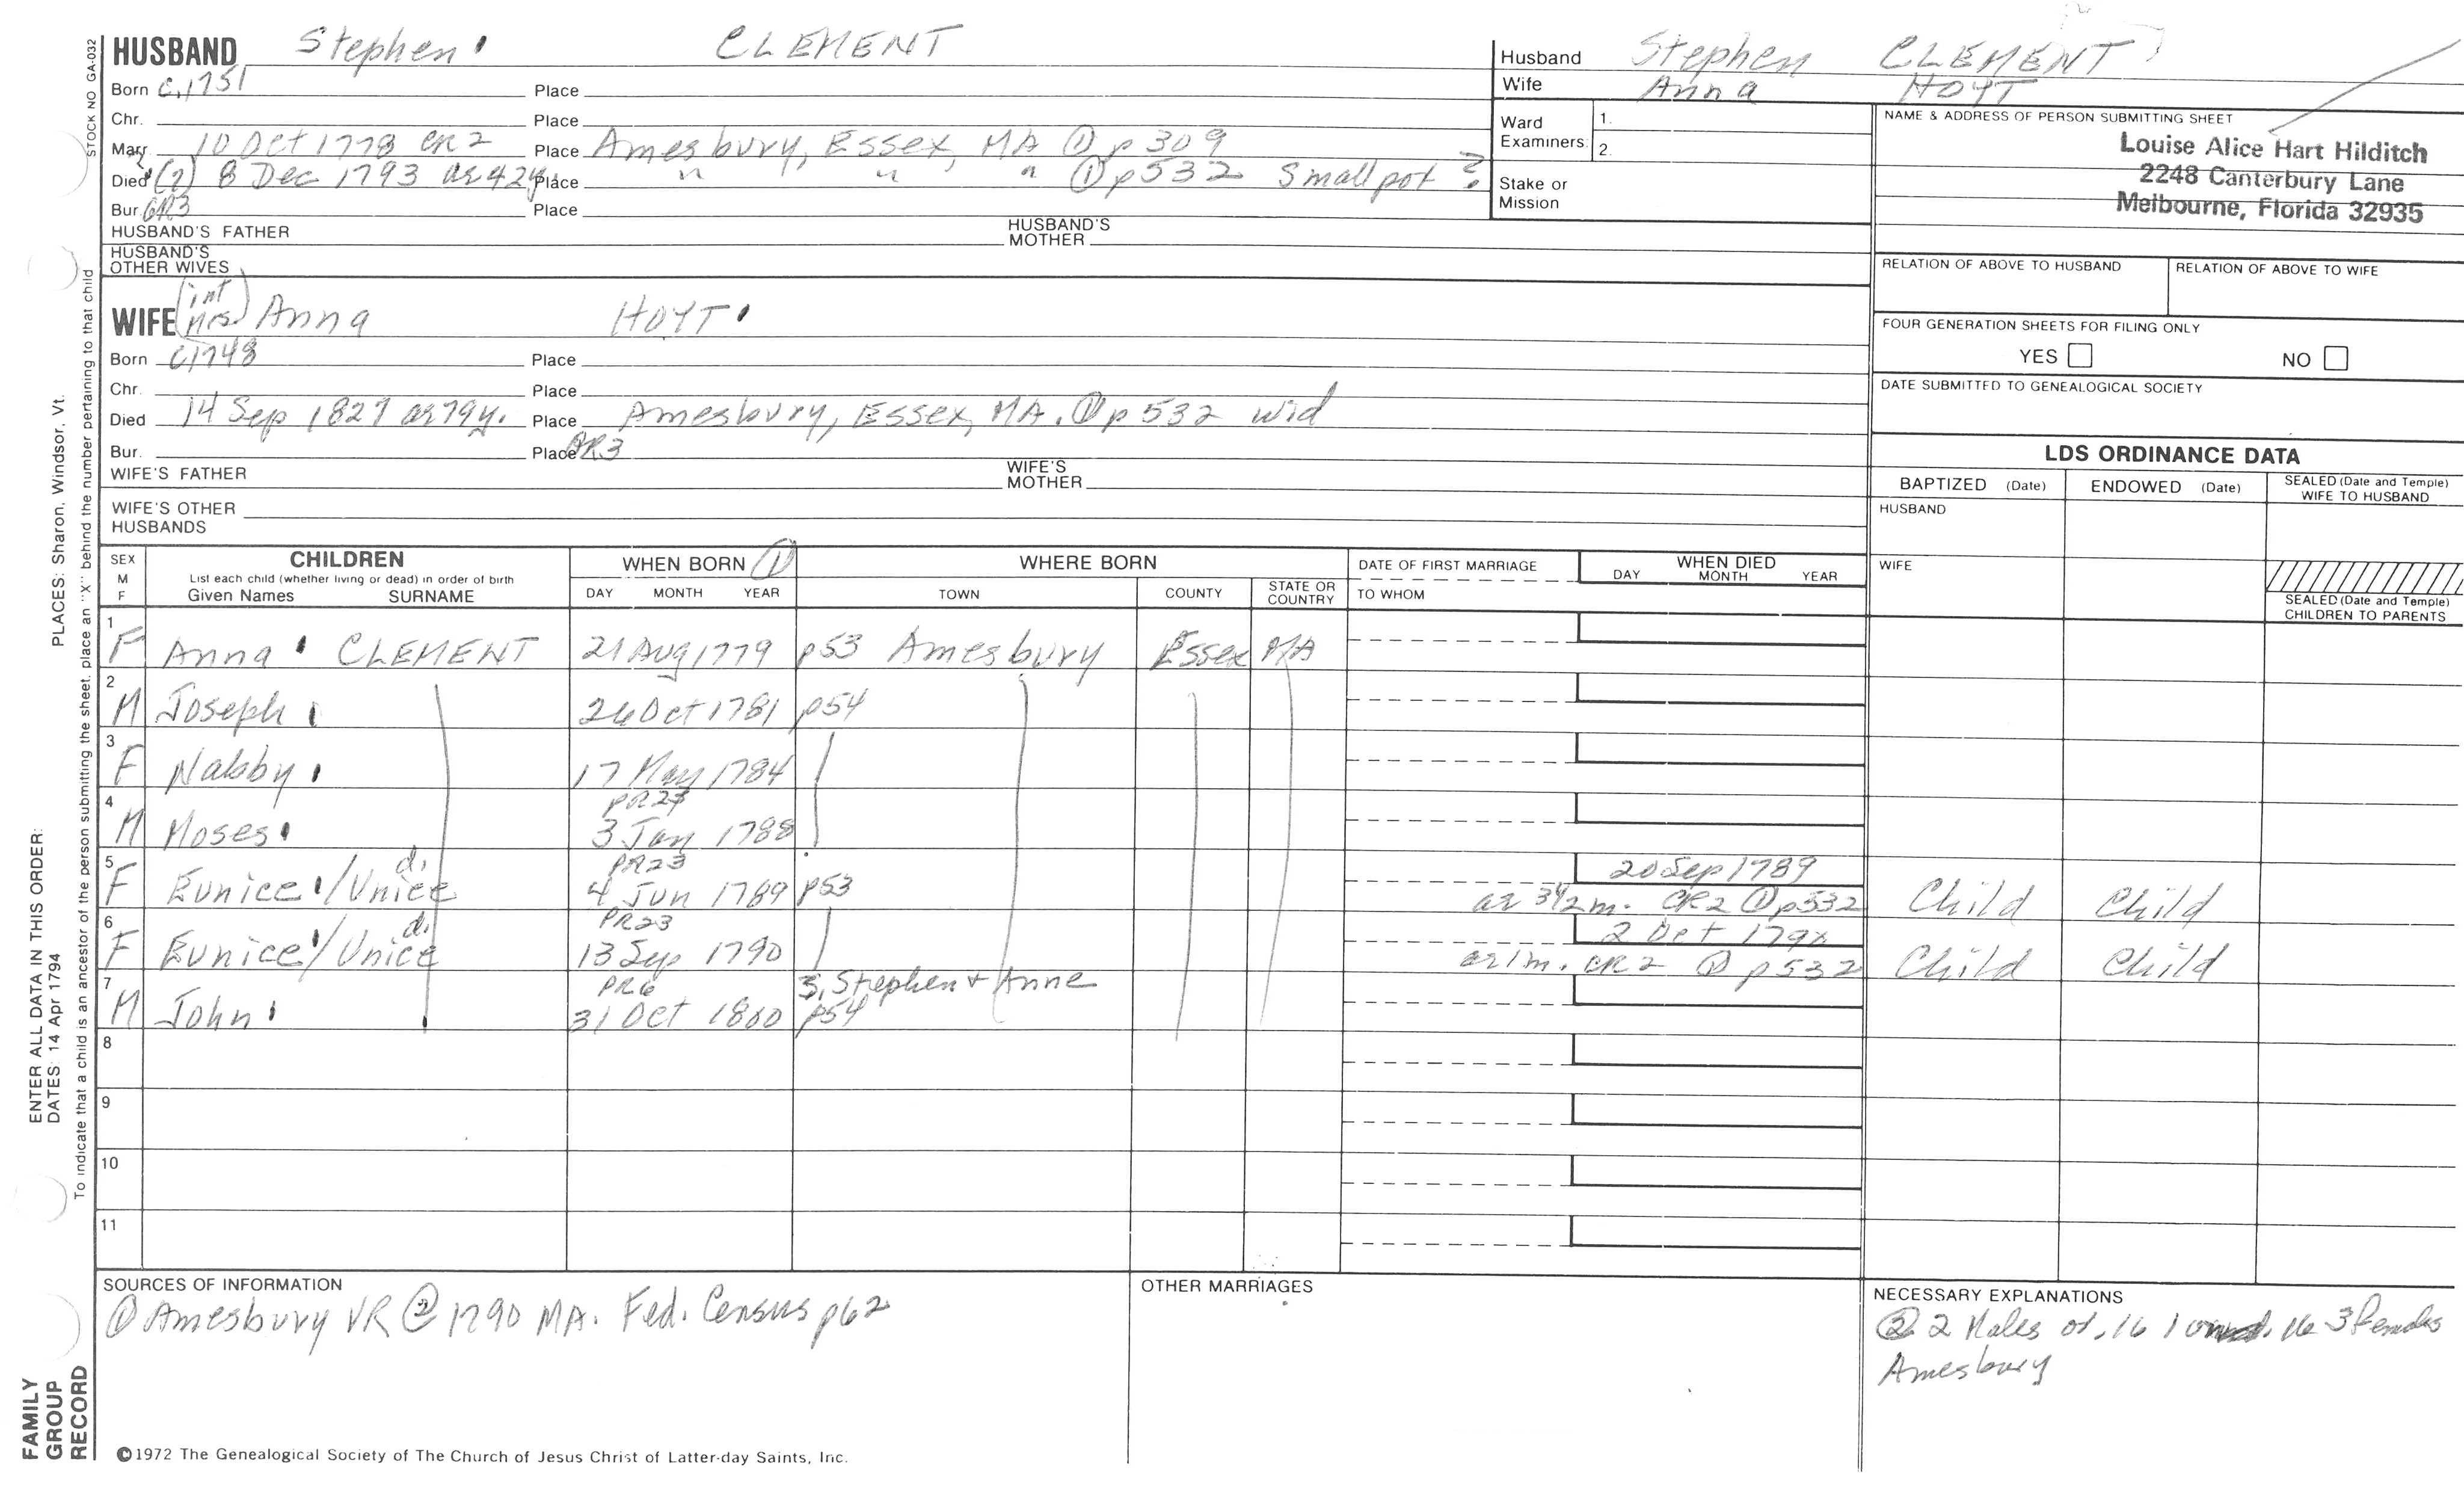 STOCK NO GA-032
HUSBAND Stephen CLEMENT
Born C.1751 Place
Chr. Place
Marr. 10 Oct 1778 CR2 Place Amesbury, Essex, MA ① p309
Died (?) 8 Dec 1793 ae 42y Place " " " ① p532 Smallpox ?
Bur. GR3 Place
HUSBAND'S FATHER HUSBAND'S MOTHER
HUSBAND'S OTHER WIVES
WIFE (int Mrs) Anna HOYT
Born C1748 Place
Chr. Place
Died 14 Sep 1827 ae 79y. Place Amesbury, Essex, MA. ① p532 wid
Bur. Place GR3
WIFE'S FATHER WIFE'S MOTHER
WIFE'S OTHER HUSBANDS
Husband Stephen CLEMENT
Wife Anna HOYT
Ward Examiners 1.
2.
Stake or Mission
NAME & ADDRESS OF PERSON SUBMITTING SHEET
Louise Alice Hart Hilditch
2248 Canterbury Lane
Melbourne, Florida 32935
RELATION OF ABOVE TO HUSBAND RELATION OF ABOVE TO WIFE
FOUR GENERATION SHEETS FOR FILING ONLY
YES NO
DATE SUBMITTED TO GENEALOGICAL SOCIETY
LDS ORDINANCE DATA
BAPTIZED (Date) ENDOWED (Date) SEALED (Date and Temple) WIFE TO HUSBAND
HUSBAND
WIFE
SEALED (Date and Temple) CHILDREN TO PARENTS
SEX M F CHILDREN WHEN BORN ① WHERE BORN DATE OF FIRST MARRIAGE WHEN DIED
List each child (whether living or dead) in order of birth
Given Names SURNAME DAY MONTH YEAR TOWN COUNTY STATE OR COUNTRY TO WHOM DAY MONTH YEAR
1 F Anna CLEMENT 21 Aug 1779 p53 Amesbury Essex MA
2 M Joseph 26 Oct 1781 p54
3 F Nabby 17 May 1784
4 M Moses PR23 3 Jan 1788
5 F Eunice/Unice d. PR23 4 Jun 1789 p53 20 Sep 1789 ae 3 1/2 m. CR2 ① p532 Child Child
6 F Eunice/Unice d. PR23 13 Sep 1790 2 Oct ae 1m. CR2 ① p532 Child Child
7 M John PR6 31 Oct 1800 S, Stephen + Anne p54
8
9
10
11
SOURCES OF INFORMATION
① Amesbury VR ② 1790 MA. Fed. Census p62
OTHER MARRIAGES
NECESSARY EXPLANATIONS
② 2 Males o. 16 1 16 3 females
Amesbury
©1972 The Genealogical Society of The Church of Jesus Christ of Latter-day Saints, Inc.
FAMILY GROUP RECORD
ENTER ALL DATA IN THIS ORDER:
DATES: 14 Apr 1794
PLACES: Sharon, Windsor, Vt.
To indicate that a child is an ancestor of the person submitting the sheet, place an "X" behind the number pertaining to that child